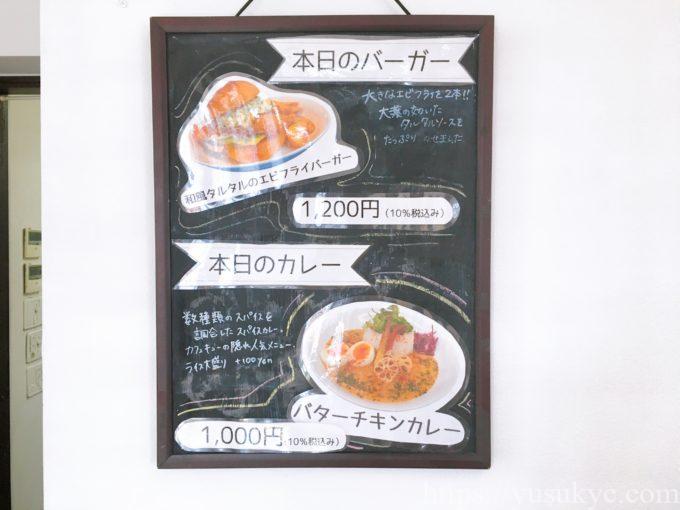 本日のバーガー
大きなエビフライを2本!!
大葉の効いた
タルタルソースを
たっぷりのせました
和風タルタルのエビフライバーガー
1,200円（10%税込み）
本日のカレー
数種類のスパイスを
調合したスパイスカレー。
カフェキューの隠れ人気メニュー。
ライス大盛り +100yen
バターチキンカレー
1,000円（10%税込み）
https://yusukyc.com